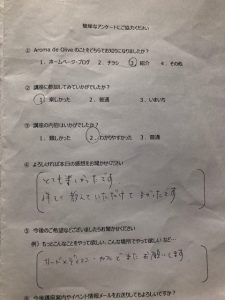 簡単なアンケートにご協力ください
① Aroma de Oliveのことをどちらでお知りになりましたか？
1．ホームページ・ブログ 2．チラシ 3．紹介 4．その他
② 講座に参加してみていかがでしたか？
1．楽しかった 2．普通 3．いまいち
③ 講座の内容はいかがでしたか？
1．難しかった 2．わかりやすかった 3．普通
④ よろしければ本日の感想をお聞かせください
とても楽しかったです
教えていただけてよかったです
⑤ 今後のご希望などございましたらお聞かせください
例）もっとこんなことをやって欲しい、こんな場所でやって欲しい など…
またお願いします
⑥ 今後講座案内やイベント情報メールをお送りしてもよろしいですか？